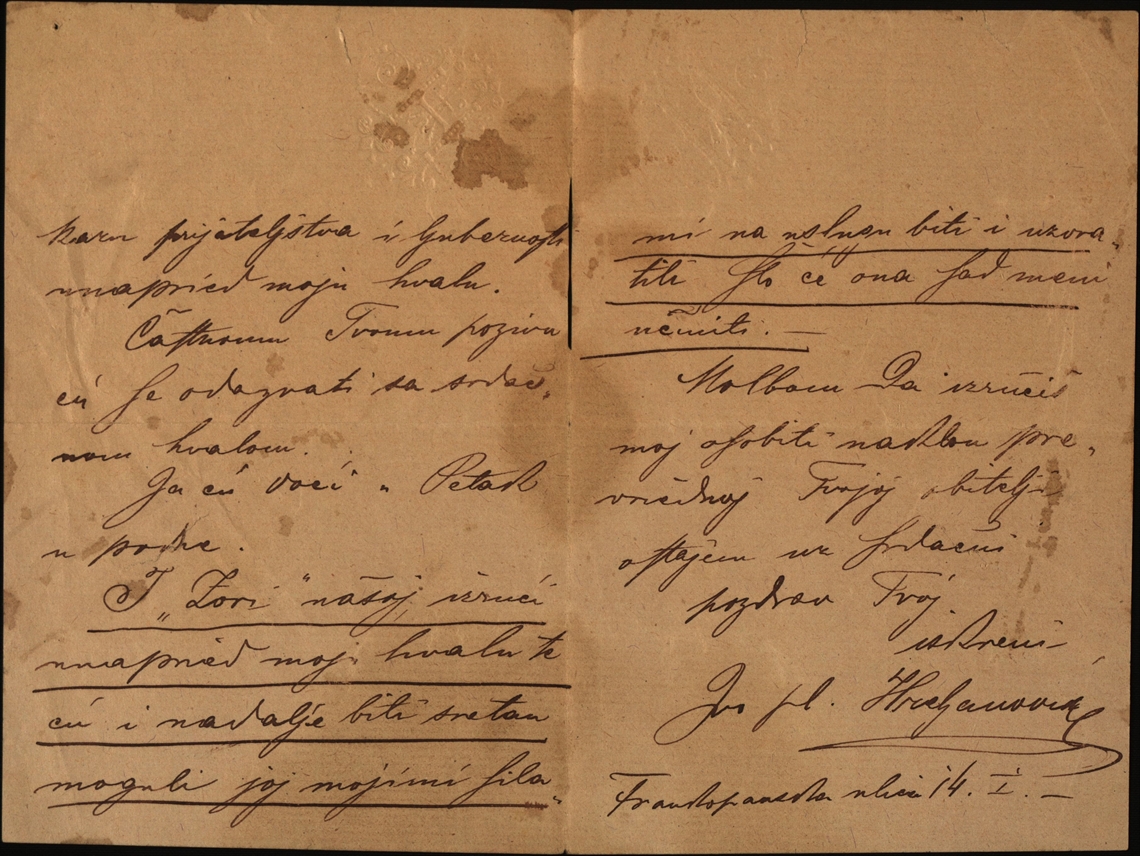 karu prijateljstva i ljubeznosti
unaprieď moju hvalu.
Častnomu Tvomu pozivu
ću se odazvati sa srdač„
nom hvalom.
Ja ću doći u Petak
u podne.
I „Zori" našoj izruči
unaprieď moju hvalu te
ću i nadalje biti sretan
mogu li joj mojimi sila„
mi na uslugu biti i uzvra„
titi što će ona sad meni
učiniti. —
Molbom Da izručiš
moj osobiti naklon pre„
vriednoj Tvojoj obitelji
ostajem uz srdačni
pozdrav Tvoj
iskreni
pl.
Frankopanska ulica 14. I. —